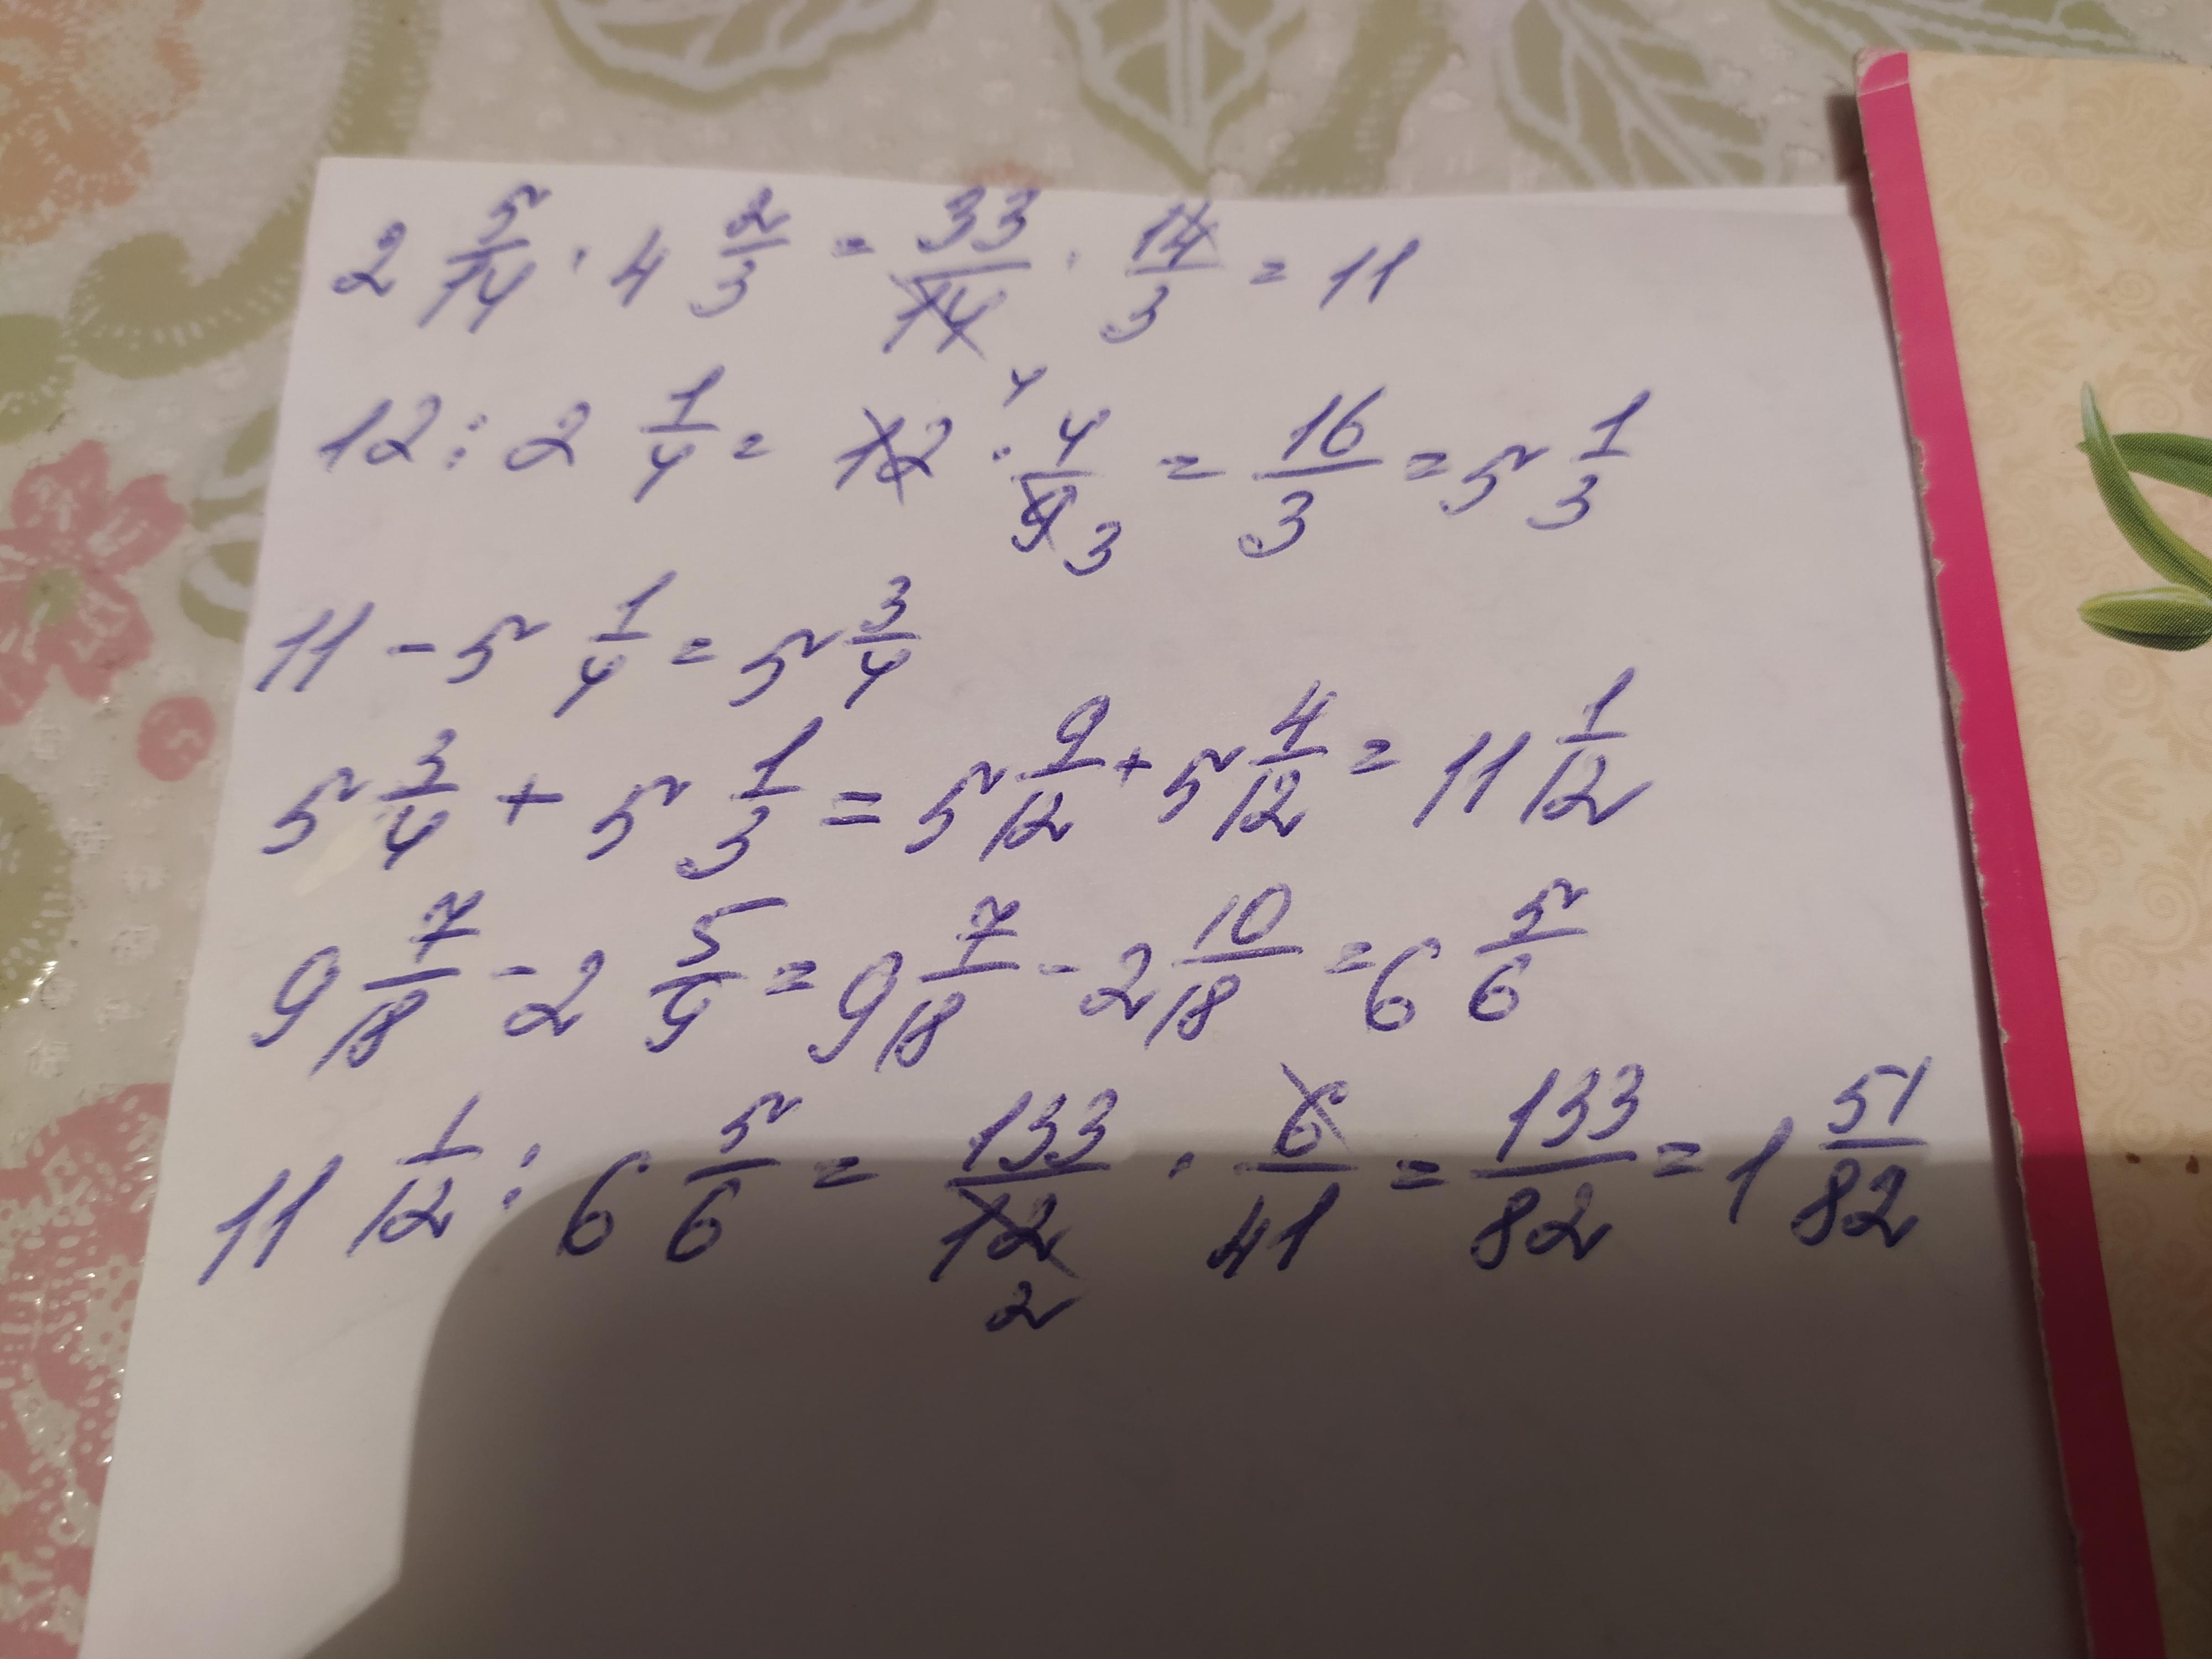 2 5/14 · 4 2/3 = 33/14 · 14/3 = 11
12 : 2 1/4 = 12 4 · 4/9 3 = 16/3 = 5 1/3
11 - 5 1/4 = 5 3/4
5 3/4 + 5 1/3 = 5 9/12 + 5 4/12 = 11 1/12
9 7/18 - 2 5/9 = 9 7/18 - 2 10/18 = 6 5/6
11 1/12 : 6 5/6 = 133/12 2 · 6/41 = 133/82 = 1 51/82